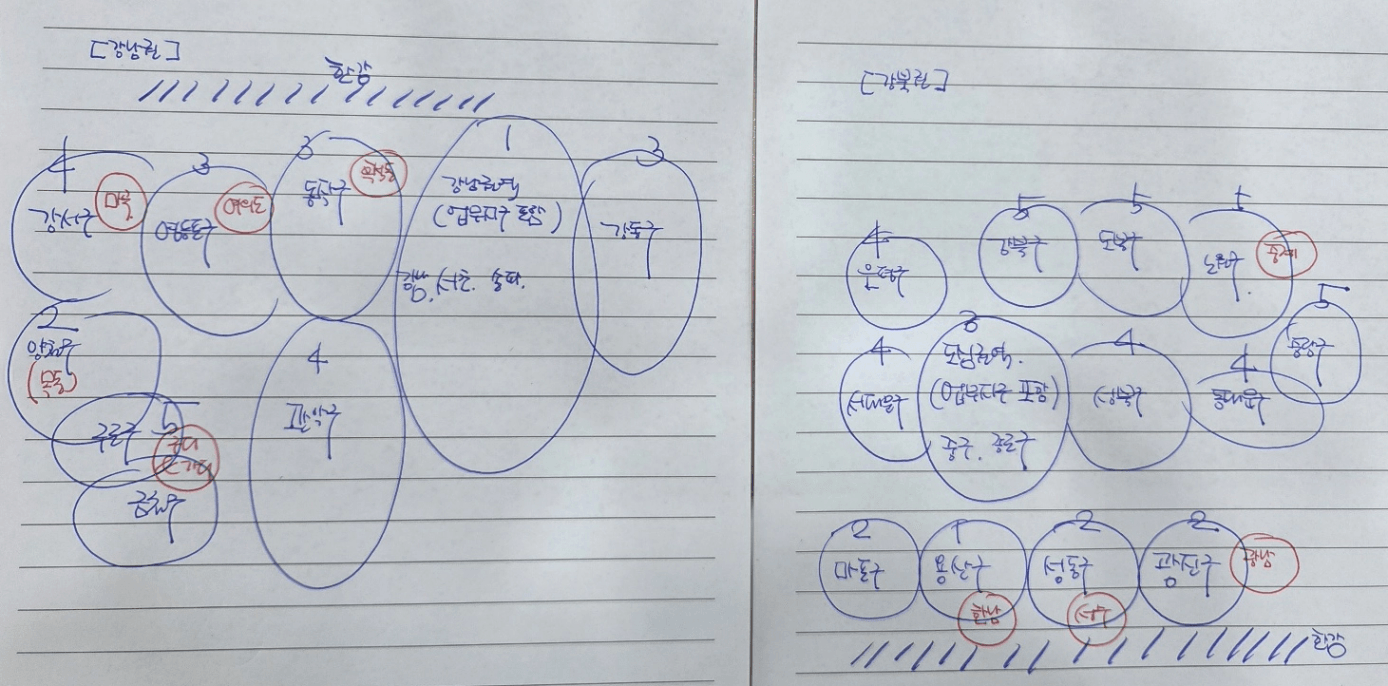 [강남권]
한강
4
강서구
마곡
3
영등포구
여의도
3
동작구
흑석동
1
강남권역
(업무지구 포함)
강남, 서초, 송파.
3
강동구
2
양천구
(목동)
5
구로구
금천구
4
관악구
[강북권]
4
은평구
5
강북구
5
도봉구
5
노원구
중계
5
중랑구
4
서대문구
3
도심권역.
(업무지구 포함)
중구. 종로구
4
성북구
4
동대문구
2
마포구
1
용산구
한남
2
성동구
성수
2
광진구
한강